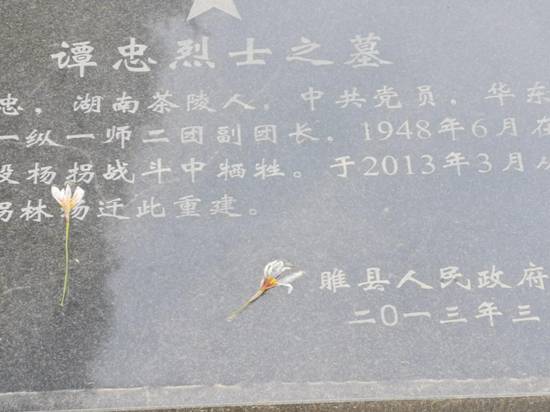 谭忠烈士之墓
忠，湖南茶陵人，中共党员，华东
一纵一师二团副团长，1948年6月在
杨拐战斗中牺牲。于2013年3月从
拐林场迁此重建。
睢县人民政府
二〇一三年三